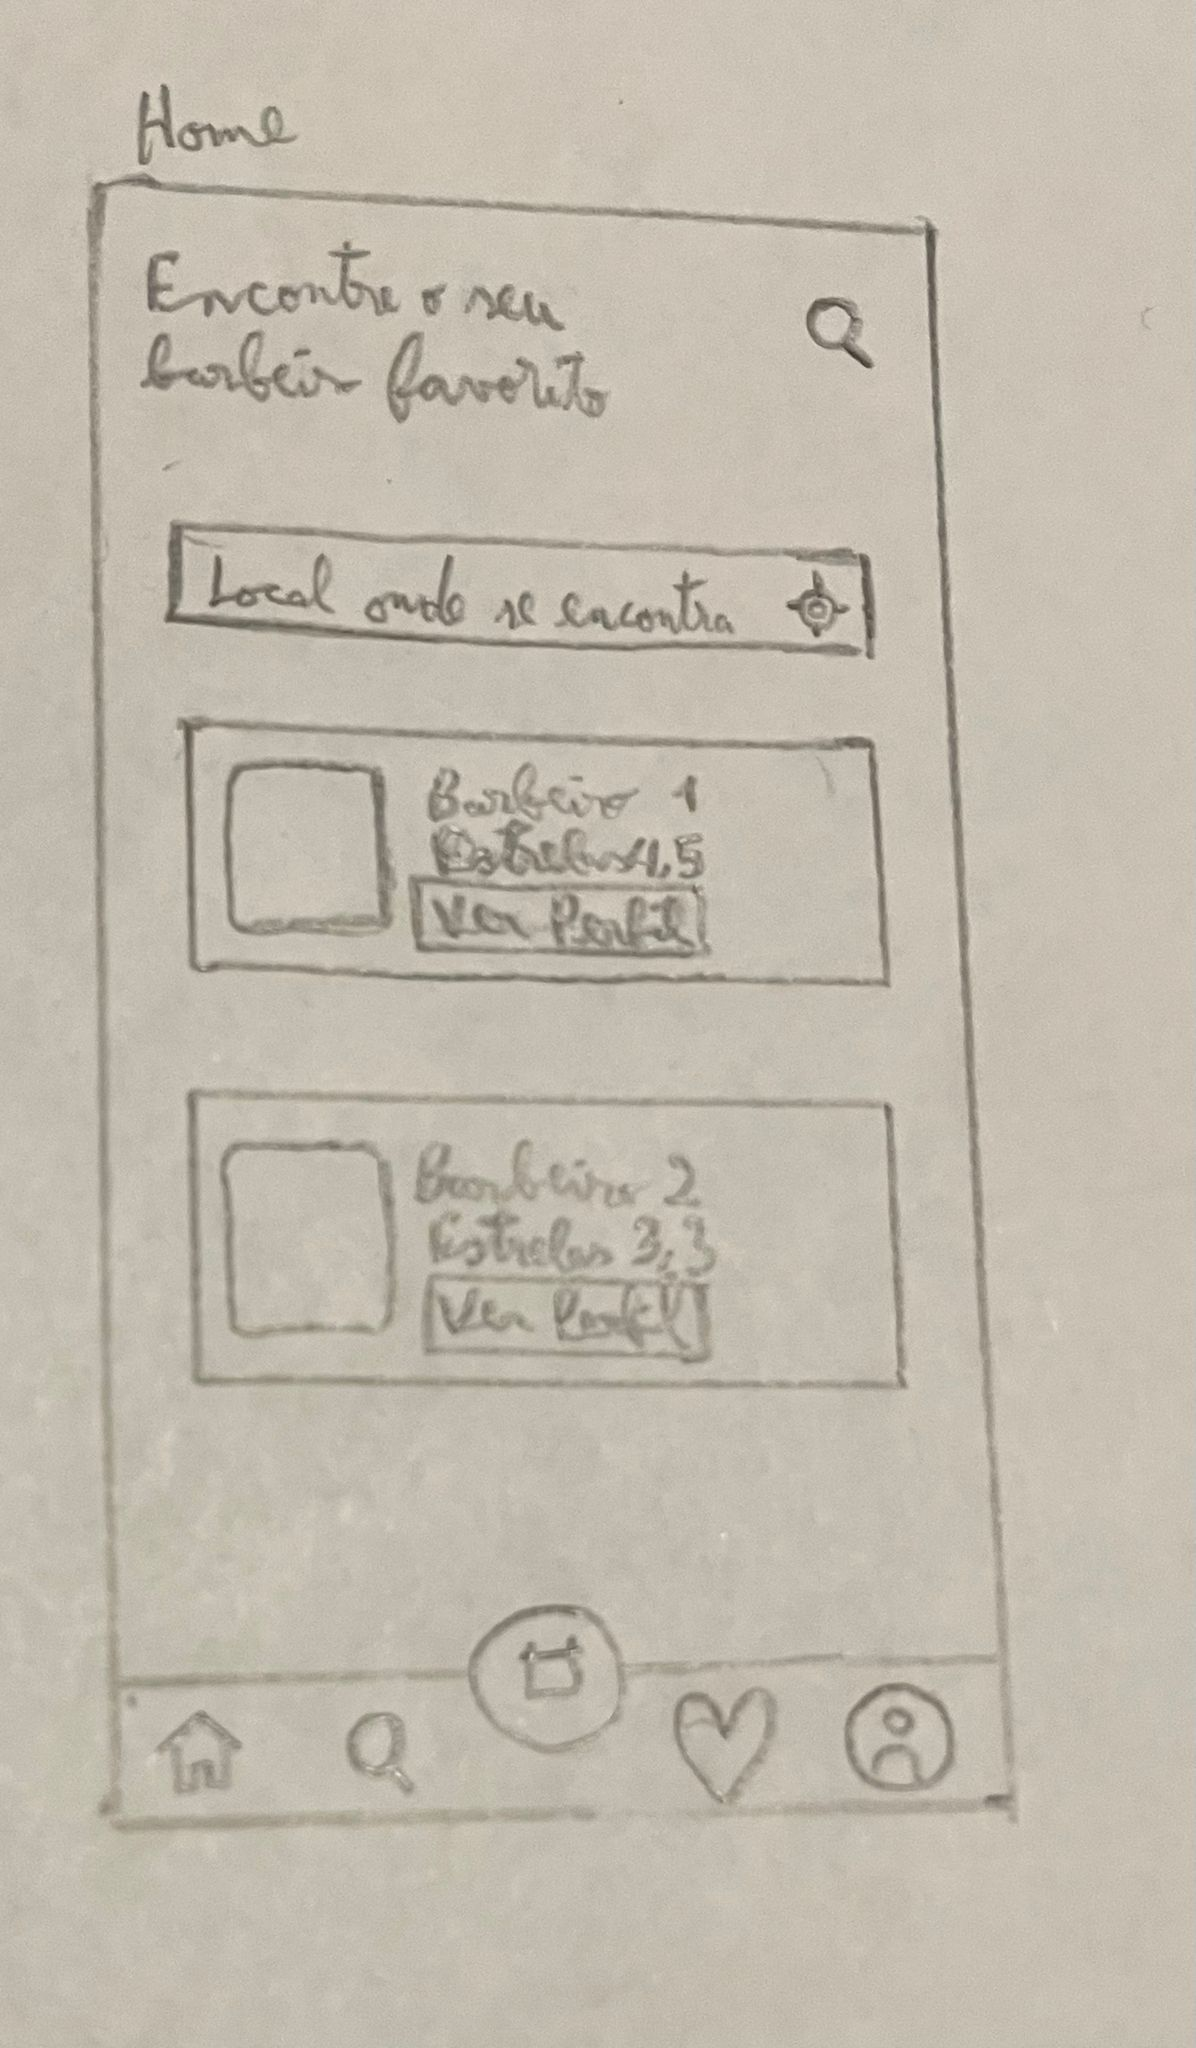 Home
Encontre o seu
barbeiro favorito
Local onde se encontra
Barbeiro 1
Estrelas 4,5
Ver Perfil
Barbeiro 2
Estrelas 3,3
Ver Perfil